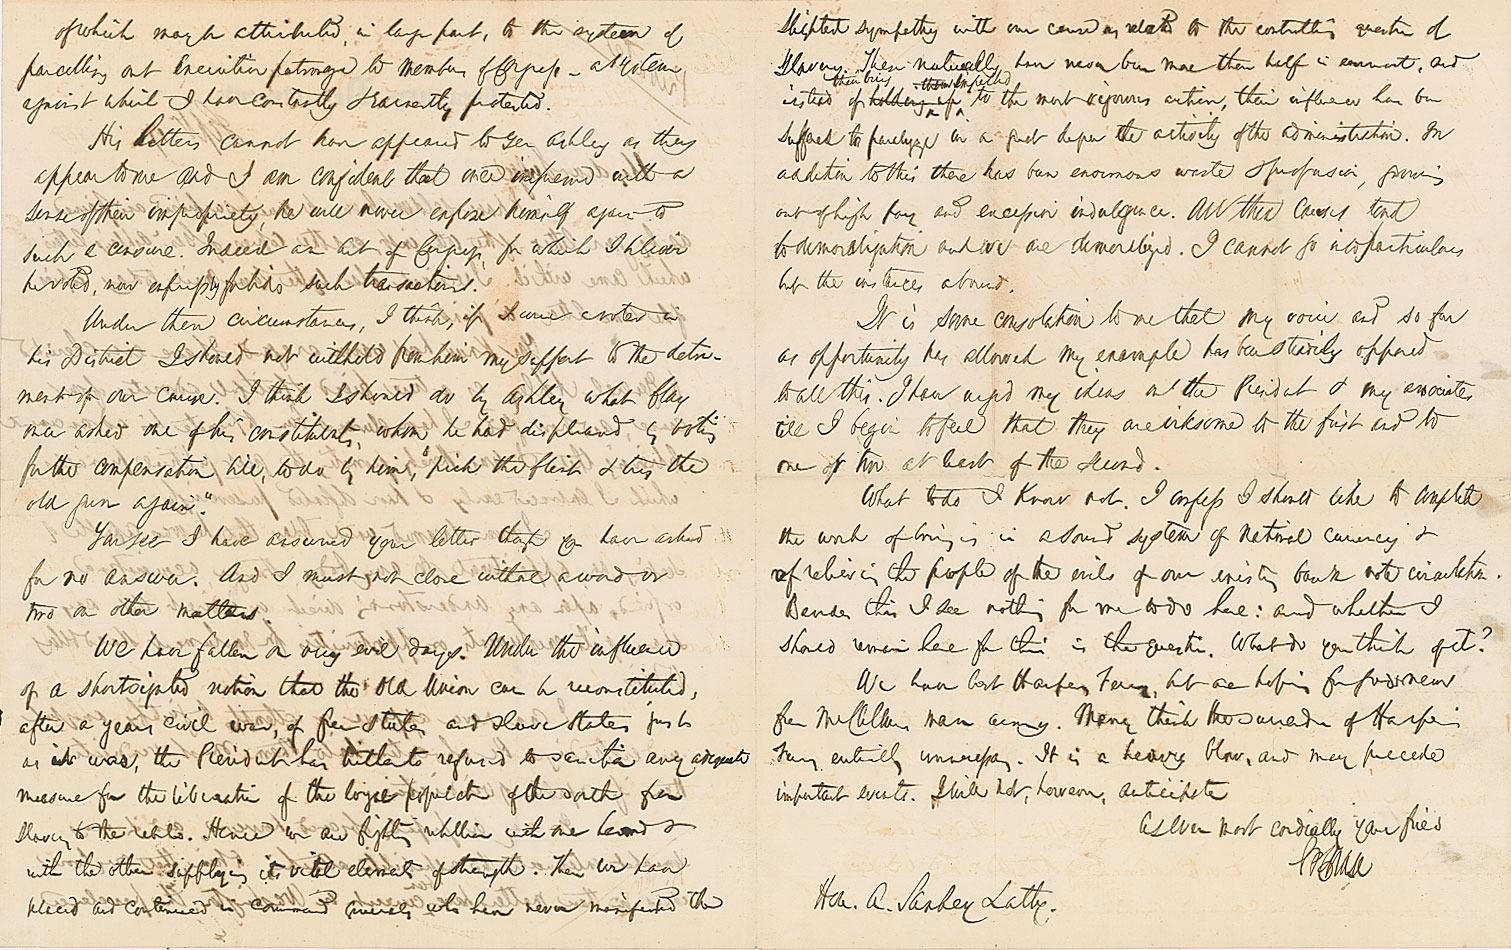 of which may be attributed, in large part, to the system of
parcelling out Executive patronage to members of Congress – a system
against which I have constantly & earnestly protested.
His letters cannot have appeared to Gen Ashley as they
appear to me and I am confident that once impressed with a
sense of their impropriety, he will never expose himself again to
such a censure. Indeed an act of Congress, for which I believe
he voted, now expressly forbids such transactions.
Under these circumstances, I think, if I were a voter in
his District I should not withhold from him my support to the detri-
ment of our cause. I think I should do by Ashley what Clay
once asked one of his constituents, whom he had displeased by voting
for the compensation bill, to do by him, "pick the flint & try the
old gun again".
You see I have answered your letter though you have asked
for no answer. And I must not close without a word or
two on other matters.
We have fallen on very evil days. Under the influence
of a shortsighted notion that the old Union can be reconstituted,
after a years civil war, of free states and slave states just
as it was, the President has hitherto refused to sanction any adequate
measure for the liberation of the loyal population of the South from
slavery to the rebels. Hence we are fighting rebellion with one hand &
with the other supplying its vital elements of strength. Then we have
placed and continued in command generals who have never manifested the
slightest sympathy with our cause as related to the controlling question of
Slavery. These naturally have never been more than half in earnest, and
instead of their being impelled to the most vigorous action, their influence has been
suffered to paralyze in a great degree the activity of the administration. In
addition to this there has been enormous waste & profusion, growing
out of high pay and excessive indulgence. All these causes tend
to demoralization and we are demoralized. I cannot go into particulars
but the instances abound.
It is some consolation to me that my voice and so far
as opportunity has allowed my example has been steadily opposed
to all this. I have urged my ideas on the President & my associates
till I begin to feel that they are irksome to the first and to
one or two at least of the second.
What to do I know not. I confess I should like to complete
the work of bringing in a sound system of national currency &
of relieving the people of the evils of our existing bank note circulation.
Besides this I see nothing for me to do here: and whether I
should remain here for this is the question. What do you think of it?
We have lost Harpers Ferry, but are hoping for good news
from McClellans main army. Many think the surrender of Harpers
Ferry entirely unnecessary. It is a heavy blow, and may precede
important events. I will not, however, anticipate
As ever most cordially your friend
SPChase
Hon. A. Sankey Latty.